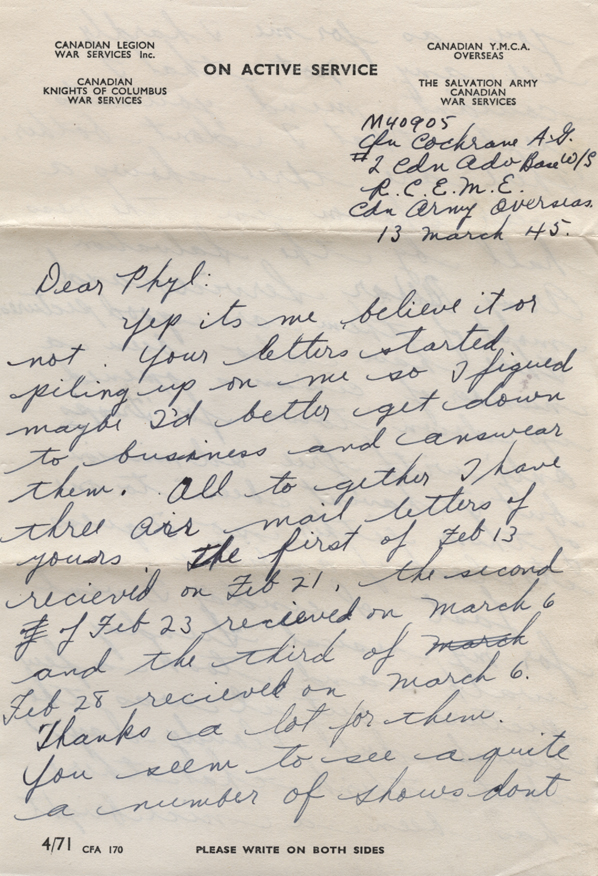 CANADIAN LEGION
WAR SERVICES Inc.
CANADIAN
KNIGHTS OF COLUMBUS
WAR SERVICES
ON ACTIVE SERVICE
CANADIAN Y.M.C.A.
OVERSEAS
THE SALVATION ARMY
CANADIAN
WAR SERVICES
M40905
Cfn Cochrane A.G.
#2 Cdn Adv Base W/S
R.C.E.M.E.
Cdn Army Overseas.
13 March 45.
Dear Phyl:
Yep its me, believe it or
not. Your letters started
piling up on me so I figued
maybe I'd better get down
to business and answear
them. All to gether I have
three air mail letters of
yours. The first of Feb 13
recieved on Feb 21, the second
of Feb 23 recieved on March 6
and the third of March
Feb 28 recieved on March 6.
Thanks a lot for them.
You seem to see a quite
a number of shows dont
4/71 CFA 170 PLEASE WRITE ON BOTH SIDES